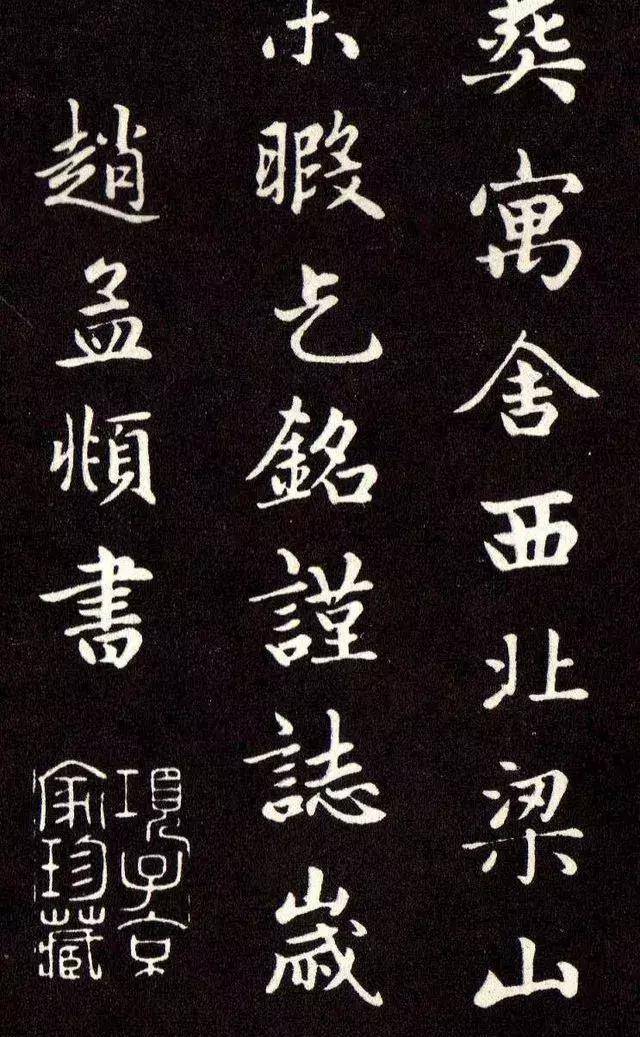 葬寓舍西北梁山
未暇乞銘謹誌歲
趙孟頫書
項子京
家珍藏